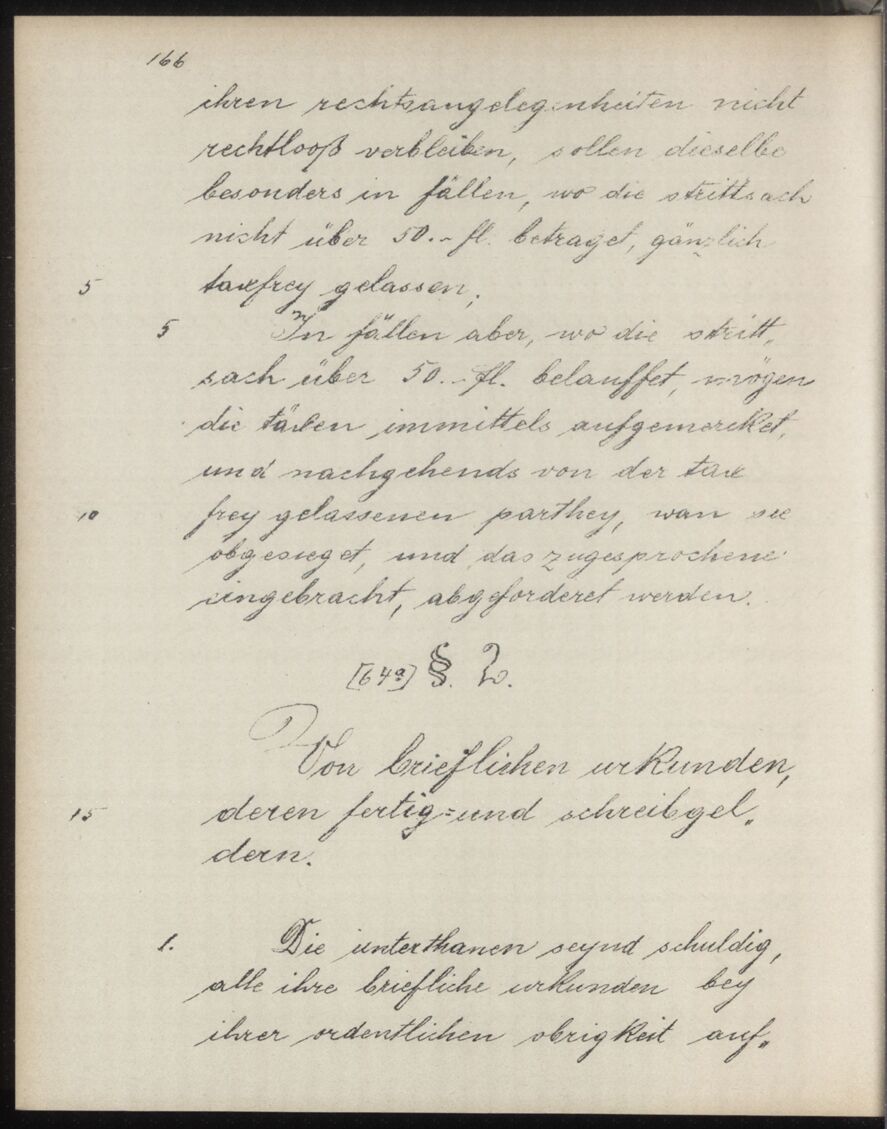 166
ihren rechtsangelegenheiten nicht
rechtlooß verbleiben, sollen dieselbe
besonders in fällen, wo die strittsach
nicht über 50.- fl. betraget, gänzlich
5 taxfrey gelassen.
5 In fällen aber, wo die stritt„
sach über 50.- fl. belauffet, mögen
die täxen immittels aufgemercket,
und nachgehends von der tax
10 frey gelassenen parthey, wan sie
obgesieget, und das zugesprochene
eingebracht, abgeforderet werden.
[64a] §. 2.
Von brieflichen urkunden,
15 deren fertig= und schreibgel„
dern.
1. Die unterthanen seynd schuldig,
alle ihre briefliche urkunden bey
ihrer ordentlichen obrigkeit auf„